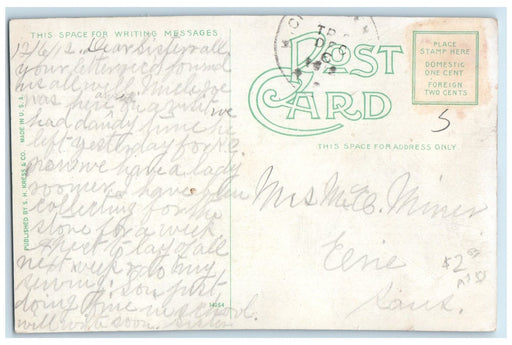 THIS SPACE FOR WRITING MESSAGES
12/6/12. Dear Sister & all
your letter rec'd found
us all
was here
had dandy time he
left yesterday for K.C.
now we have a lady
roomer. I have been
collecting for the
store for a week
expect to lay off all
next week & do my
sewing. Son just
doing fine in school.
will write soon. Sister
PUBLISHED BY S. H. KRESS & CO. MADE IN U. S. A.
14264
POST
CARD
THIS SPACE FOR ADDRESS ONLY.
DEC
6
PLACE
STAMP HERE
DOMESTIC
ONE CENT
FOREIGN
TWO CENTS
5
Mrs M. B. Miner
Erie
Kans.